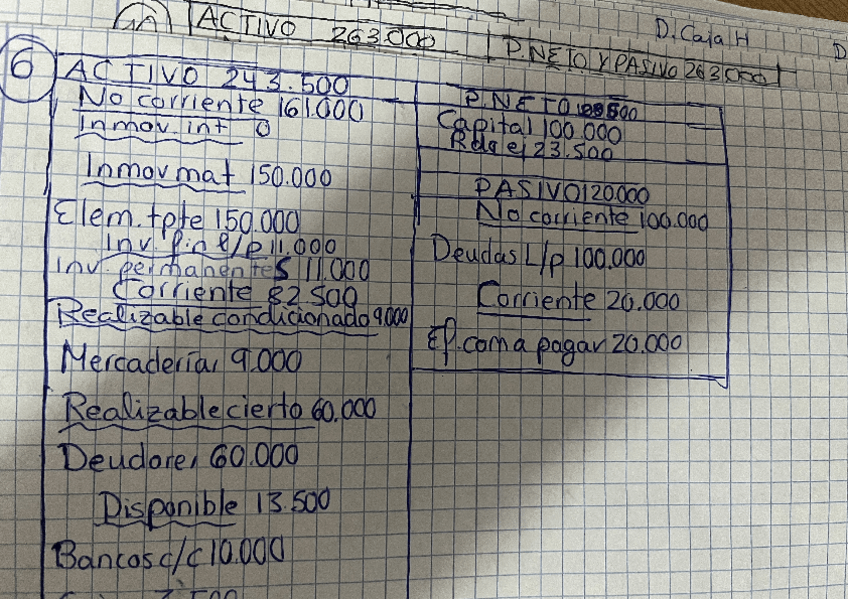 ACTIVO 263.000
P. NETO Y PASIVO 263.000
D. Caja H
D
6
ACTIVO 243.500
No corriente 161.000
Inmov. int 0
Inmov mat 150.000
Elem. tpte 150.000
Inv. fin l/p 11.000
Inv. permanentes 11.000
Corriente 82.500
Realizable condicionado 9000
Mercaderías 9.000
Realizable cierto 60.000
Deudores 60.000
Disponible 13.500
Bancos c/c 10.000
P. NETO
Capital 100.000
Rdo ej 23.500
PASIVO 120.000
No corriente 100.000
Deudas L/p 100.000
Corriente 20.000
Ef. com a pagar 20.000